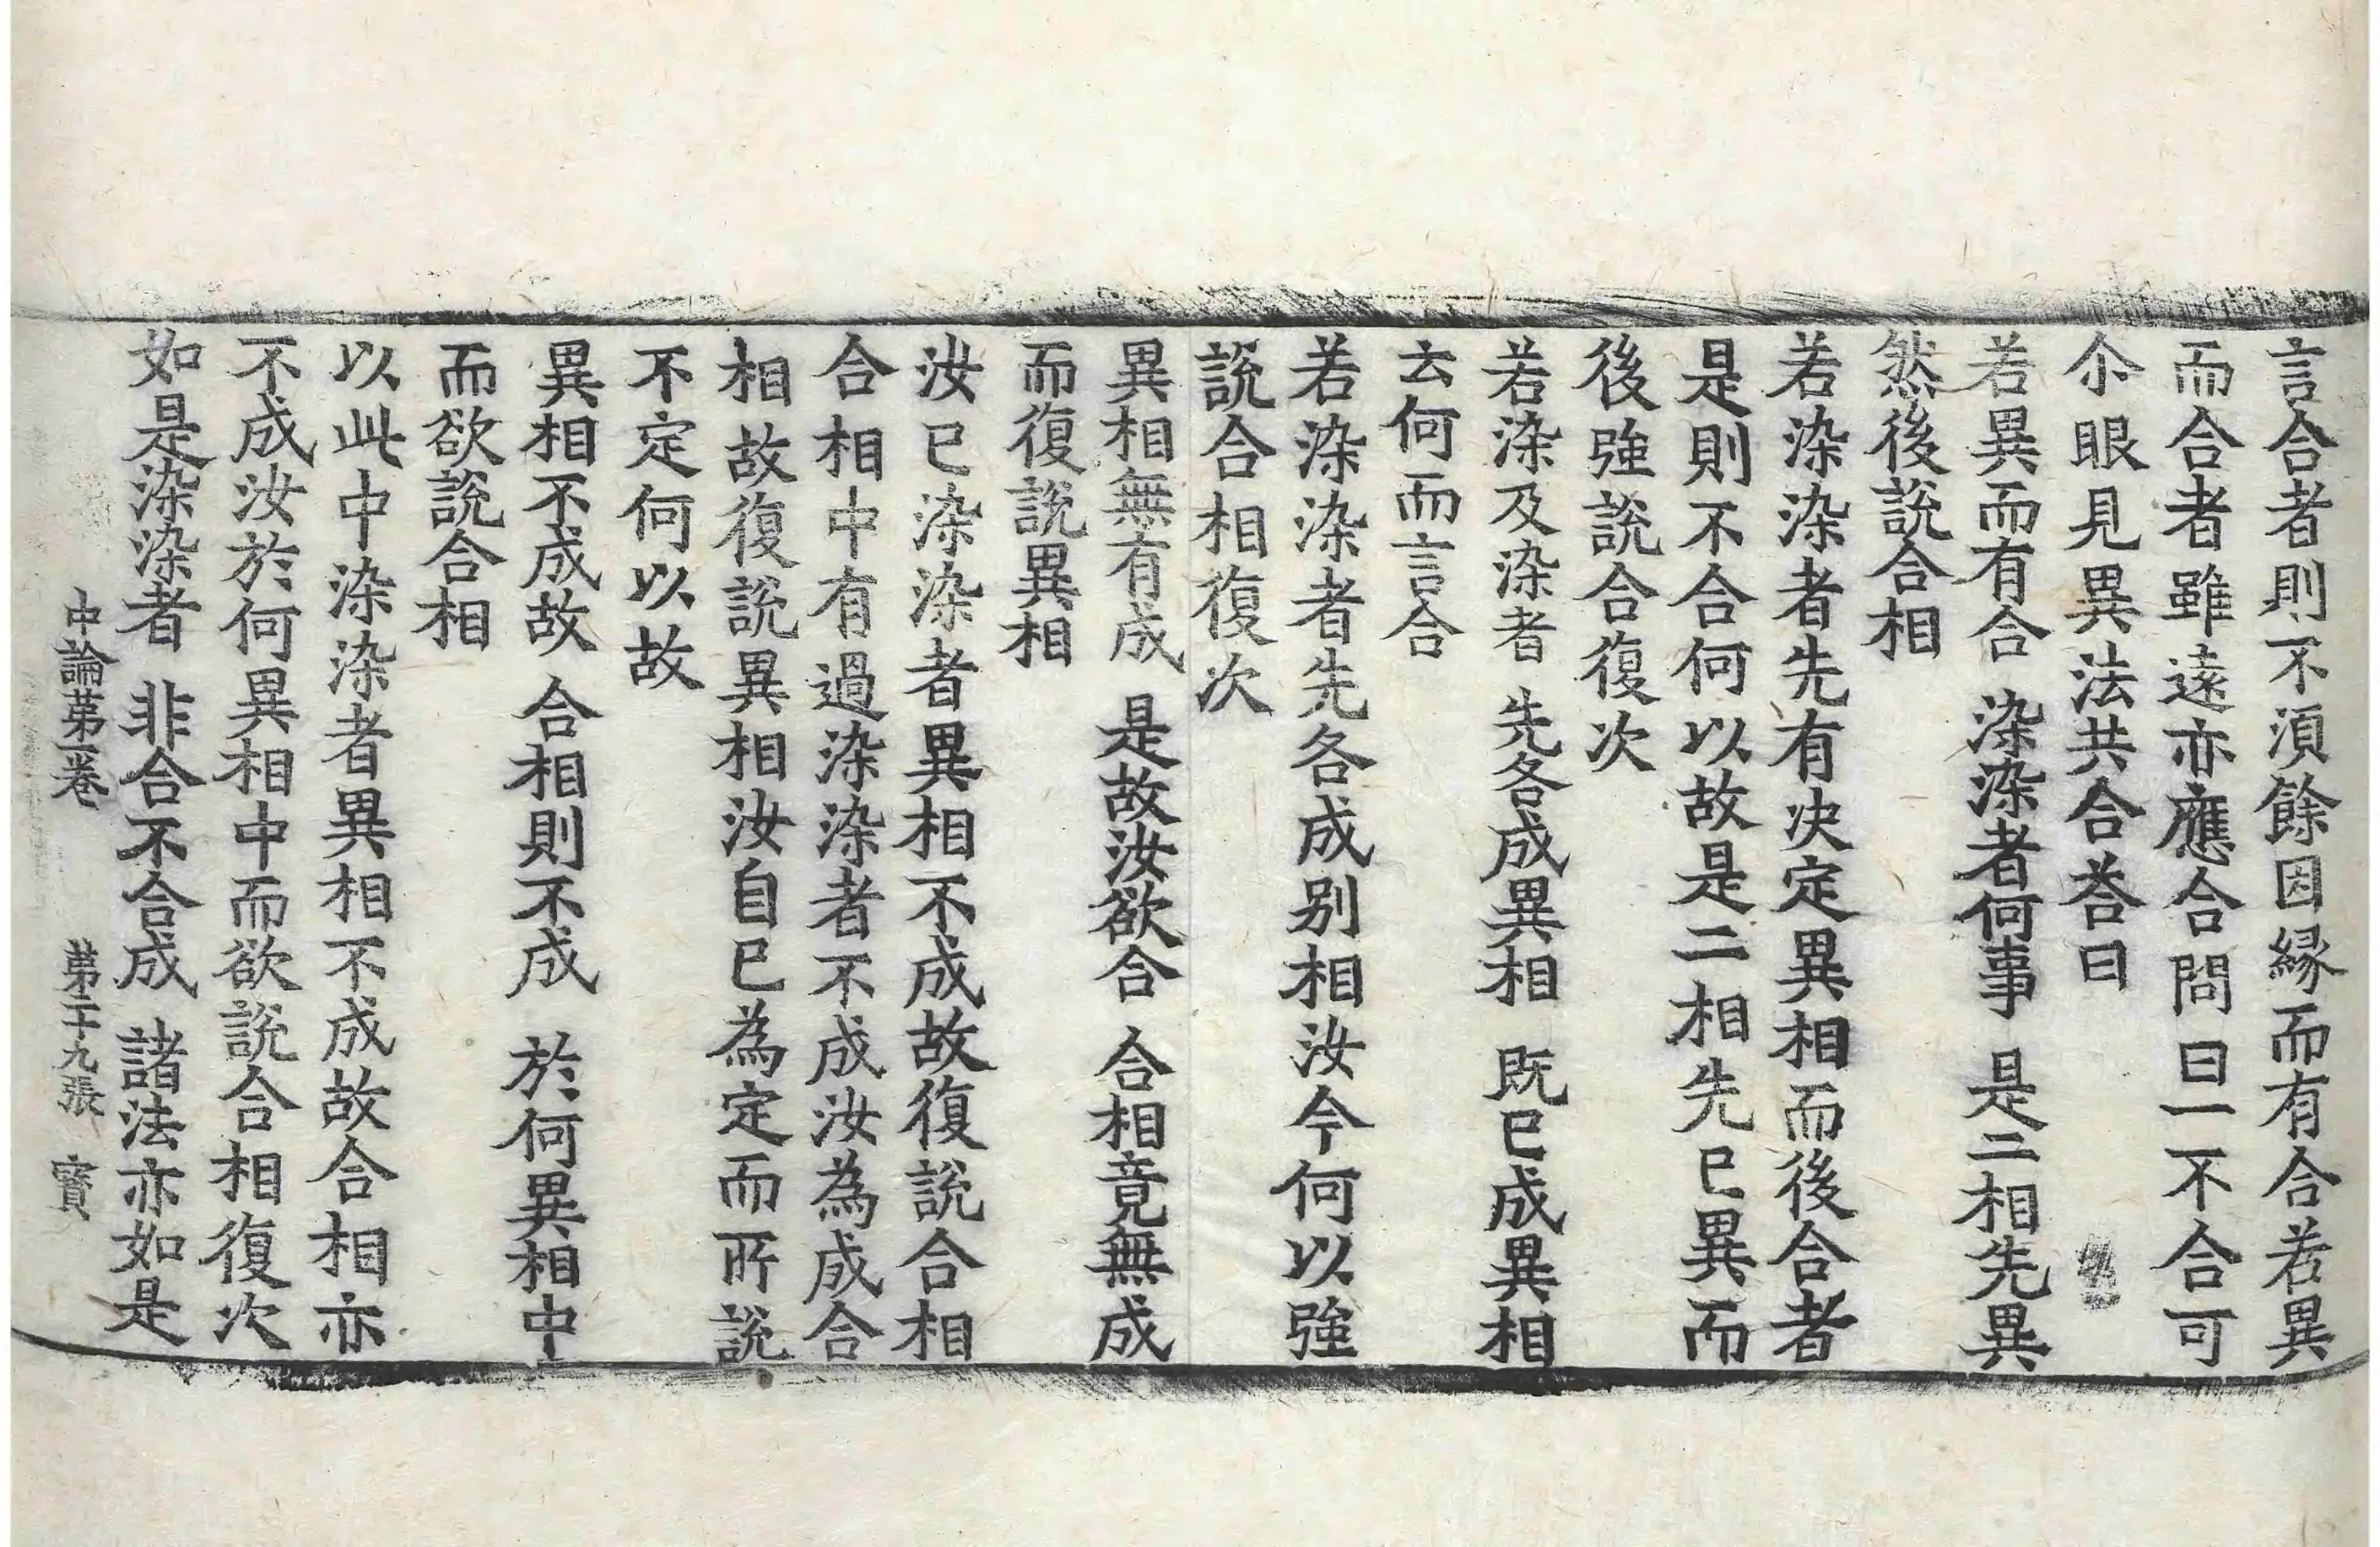 言合者則不須餘因緣而有合若異
而合者雖遠亦應合問曰一不合可
尒眼見異法共合荅曰
若異而有合 染染者何事 是二相先異
然後說合相
若染染者先有决定異相而後合者
是則不合何以故是二相先已異而
後強說合復次
若染及染者 先各成異相 既已成異相
云何而言合
若染染者先各成别相汝今何以強
說合相復次
異相無有成 是故汝欲合 合相竟無成
而復說異相
汝已染染者異相不成故復說合相
合相中有過染染者不成汝為成合
相故復說異相汝自已為定而所說
不定何以故
異相不成故 合相則不成 於何異相中
而欲說合相
以此中染染者異相不成故合相亦
不成汝於何異相中而欲說合相復次
如是染染者 非合不合成 諸法亦如是
中論第一卷 第二十九張 寳